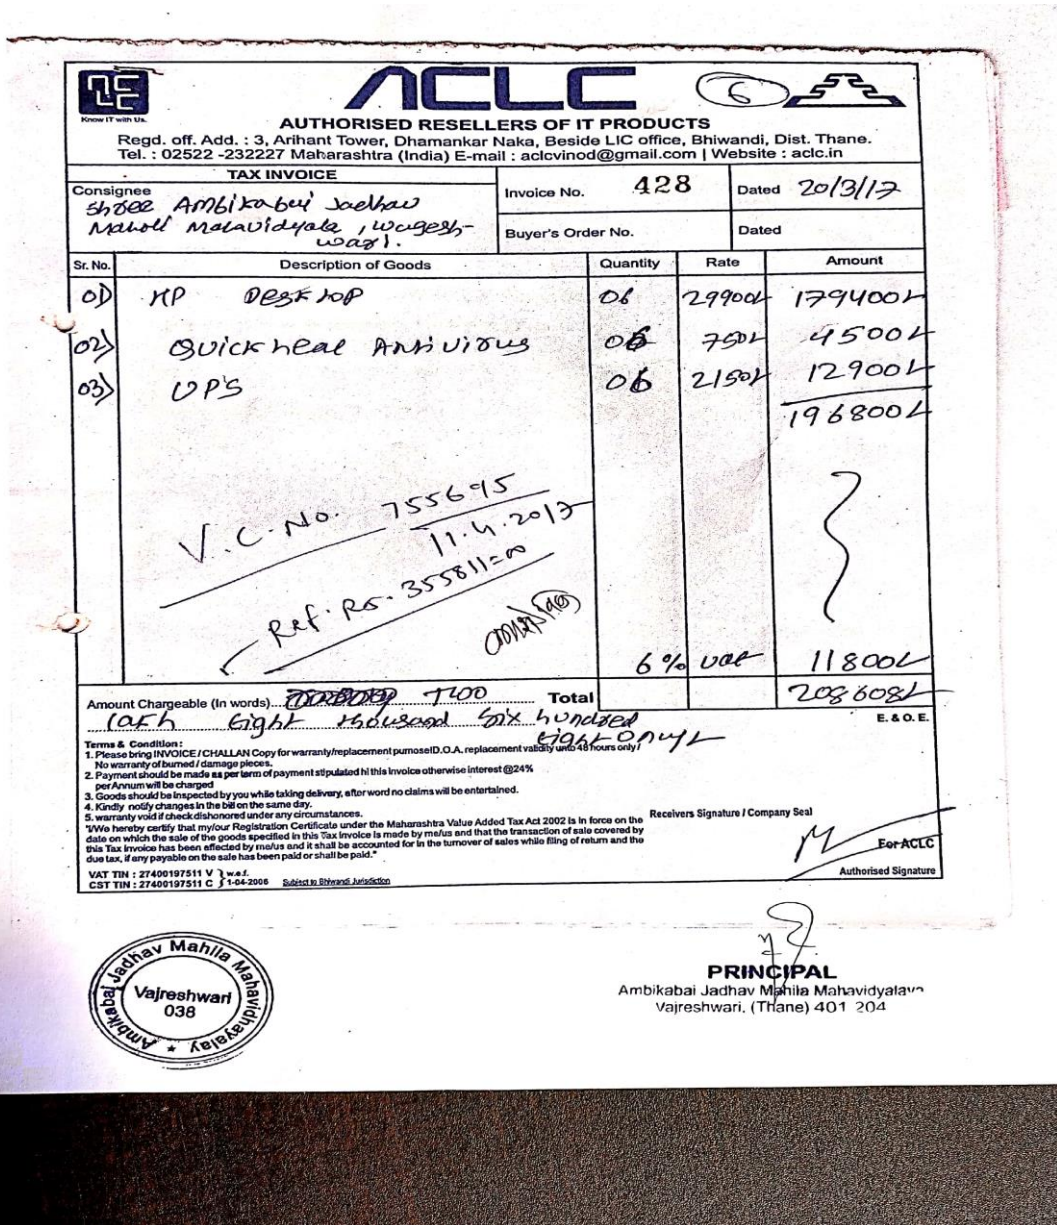 ACLC
6
Know IT with Us.
AUTHORISED RESELLERS OF IT PRODUCTS
Regd. off. Add. : 3, Arihant Tower, Dhamankar Naka, Beside LIC office, Bhiwandi, Dist. Thane.
Tel. : 02522 -232227 Maharashtra (India) E-mail : aclcvinod@gmail.com | Website : aclc.in
TAX INVOICE
Consignee
Shree Ambikabai Jadhav
Invoice No. 428 Dated 20/3/17
Buyer's Order No. Dated
Sr. No. Description of Goods Quantity Rate Amount
01) HP Desktop 06 29900/- 179400/-
02) Quick heal Antivirus 06 750/- 4500/-
03) UPS 06 2150/- 12900/-
196800/-
V.C. No. 755695
11.4.2017
Ref. Rs. 355811=00
6% vat 11800/-
Amount Chargeable (In words) Two Total 208608/-
lakh Eight thousand Six hundred
Eight only/-
E. & O. E.
Terms & Condition:
1. Please bring INVOICE / CHALLAN Copy for warranty/replacement purnoselD.O.A. replacement validity unto 48 hours only /
No warranty of burned / damage pieces.
2. Payment should be made as per term of payment stipulated hi this Invoice otherwise interest @24%
per Annum will be charged
3. Goods should be Inspected by you while taking delivery, after word no claims will be entertained.
4. Kindly notify changes in the bill on the same day.
5. warranty void if check dishonored under any circumstances.
"I/We hereby certify that my/our Registration Certificate under the Maharashtra Value Added Tax Act 2002 is in force on the
date on which the sale of the goods specified in this Tax Invoice is made by me/us and that the transaction of sale covered by
this Tax Invoice has been affected by me/us and it shall be accounted for in the turnover of sales while filing of return and the
due tax, if any payable on the sale has been paid or shall be paid."
Receivers Signature / Company Seal
For ACLC
Authorised Signature
VAT TIN : 27400197511 V } w.e.f.
CST TIN : 27400197511 C } 1-04-2006 Subject to Bhiwandi Jurisdiction
Ambikabai Jadhav Mahila Mahavidhayalay
Vajreshwari
038
PRINCIPAL
Ambikabai Jadhav Mahila Mahavidyalaya
Vajreshwari, (Thane) 401 204